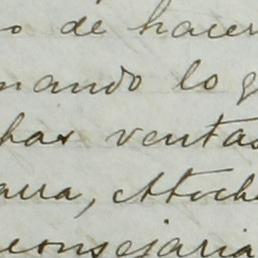 o de hacer
mando lo q
has ventas
arra, Atoch
consejaria